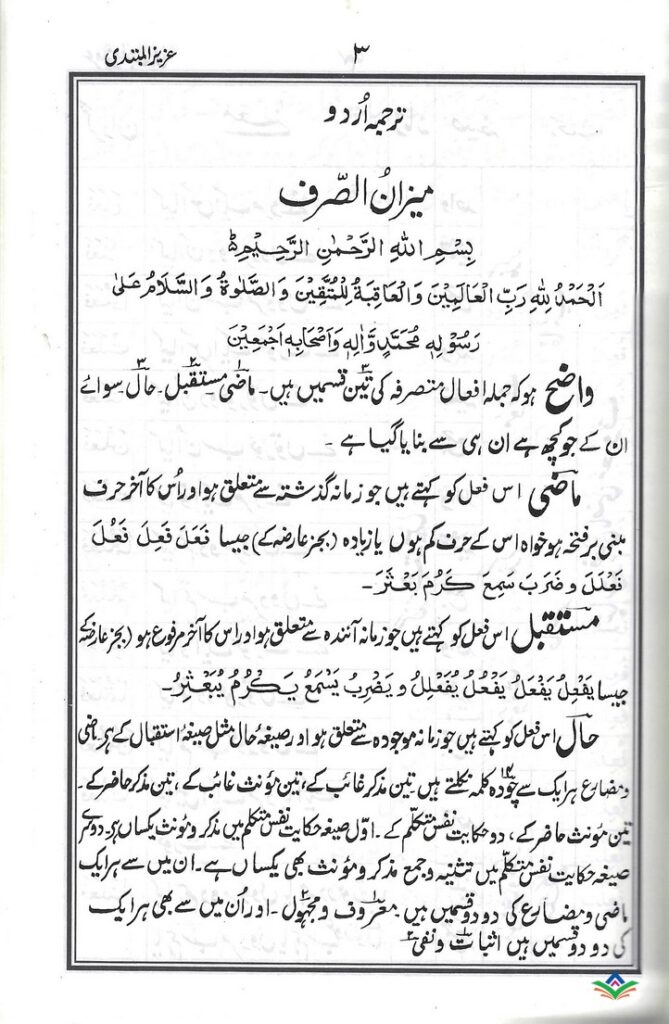 عزیز المبتدی
۳
ترجمہ اُردو
میزانُ الصّرف
بِسْمِ اللهِ الرَّحْمٰنِ الرَّحِيْمِ ط
اَلْحَمْدُ لِلّٰهِ رَبِّ الْعَالَمِيْنَ وَالْعَاقِبَةُ لِلْمُتَّقِيْنَ وَالصَّلٰوةُ وَالسَّلَامُ عَلٰى
رَسُوْلِهٖ مُحَمَّدٍ وَّاٰلِهٖ وَاَصْحَابِهٖ اَجْمَعِيْنَ
واضح ہو کہ جملہ افعال متصرفہ کی تین۳ قسمیں ہیں۔ ماضی۱ مستقبل۲۔ حال۳۔ سوائے
ان کے جو کچھ ہے ان ہی سے بنایا گیا ہے۔
ماضی اس فعل کو کہتے ہیں جو زمانہ گذشتہ سے متعلق ہو اور اُس کا آخر حرف
مبنی بر فتحہ ہو خواہ اس کے حرف کم ہوں یا زیادہ (بجز عارضہ کے) جیسا فَعَلَ فَعِلَ فَعُلَ
فَعْلَلَ و ضَرَبَ سَمِعَ كَرُمَ بَعْثَرَ۔
مستقبل اس فعل کو کہتے ہیں جو زمانہ آئندہ سے متعلق ہو اور اس کا آخر مرفوع ہو (بجز عارضہ کے
جیسا يَفْعِلُ يَفْعَلُ يَفْعُلُ يُفَعْلِلُ و يَضْرِبُ يَسْمَعُ يَكْرُمُ يُبَعْثِرُ۔
حال اس فعل کو کہتے ہیں جو زمانہ موجودہ سے متعلق ہو اور صیغۂ حال مثل صیغۂ استقبال کے ہے۔ ماضی
و مضارع ہر ایک سے چودہ۱۴ کلمہ نکلتے ہیں۔ تین مذکر غائب کے، تین مؤنث غائب کے، تین مذکر حاضر کے۔
تین مؤنث حاضر کے، دو حکایت نفس متکلم کے۔ اوّل صیغہ حکایت نفس متکلم میں مذکر و مؤنث یکساں ہے۔ دوسرے
صیغہ حکایت نفس متکلم میں تثنیہ و جمع مذکر و مؤنث بھی یکساں ہے۔ ان میں سے ہر ایک
ماضی و مضارع کی دو دو قسمیں ہیں معروف۱ و مجہول۲۔ اور اُن میں سے بھی ہر ایک
کی دو دو قسمیں ہیں اثبات۱ و نفی۲